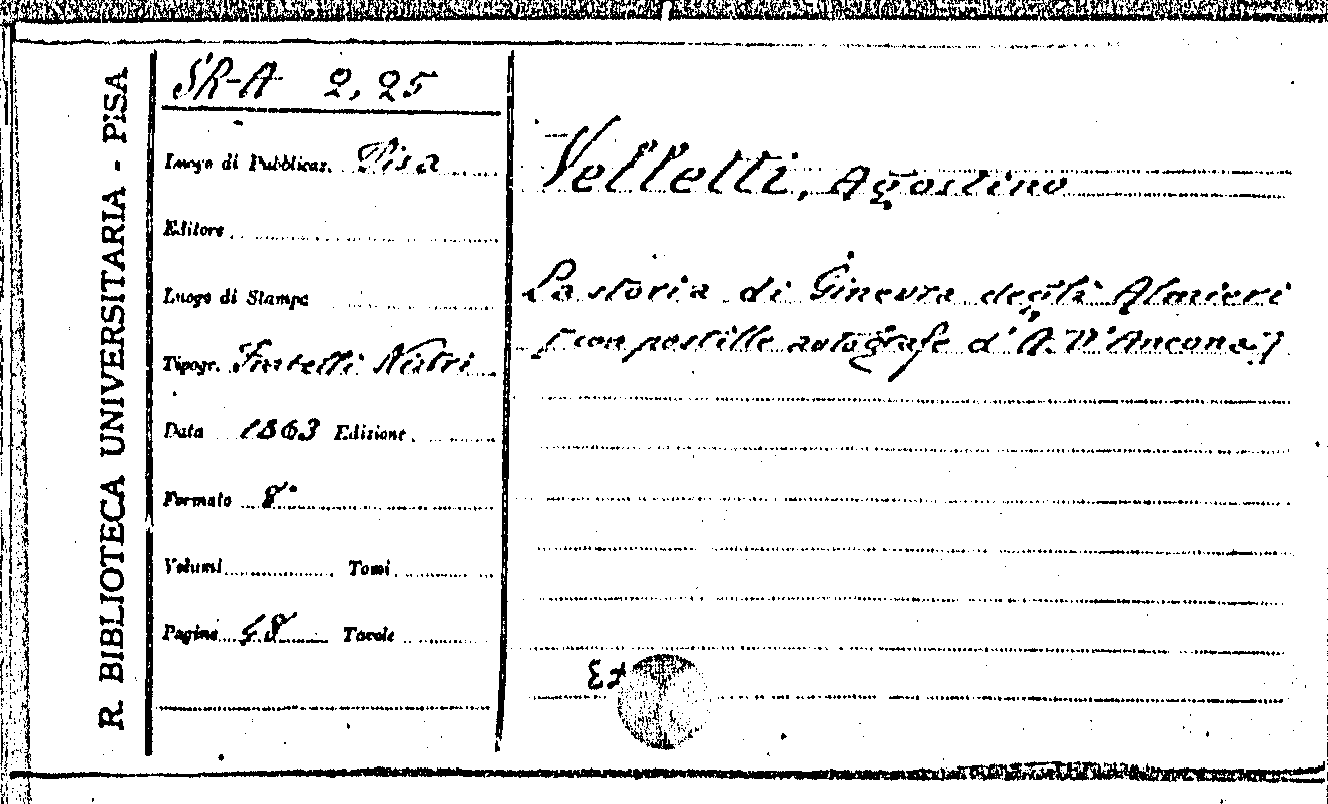 R. BIBLIOTECA UNIVERSITARIA - PISA
SR-A 2, 25
Luogo di Pubblicaz. Pisa
Editore
Luogo di Stampa
Tipogr. Fratelli Nistri
Data 1863 Edizione
Formato 8°
Volumi Tomi
Pagine 48 Tavole
Velletti, Agostino
La storia di Ginevra degli Almieri
[con postille autografe d'A. D'Ancona]